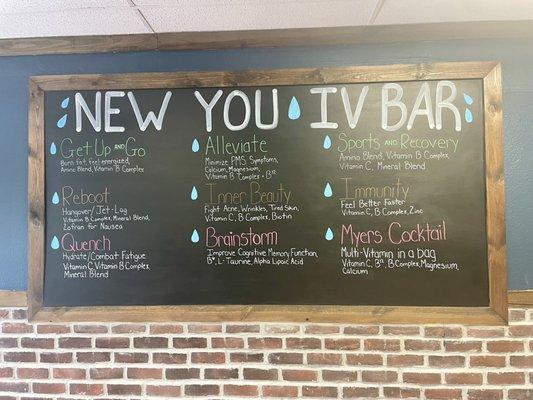 NEW YOU IV BAR
Get Up AND Go
Burn fat, feel energized,
Amino Blend, Vitamin B Complex
Reboot
Hangover/Jet-Lag
Vitamin B Complex, Mineral Blend,
Zofran for Nausea
Quench
Hydrate/Combat Fatigue
Vitamin C, Vitamin B Complex,
Mineral Blend
Alleviate
Minimize PMS Symptoms,
Calcium, Magnesium,
Vitamin B Complex + B12
Inner Beauty
Fight Acne, Wrinkles, Tired Skin,
Vitamin C, B Complex, Biotin
Brainstorm
Improve Cognitive Memory Function,
B12, L-Taurine, Alpha Lipoic Acid
Sports AND Recovery
Amino Blend, Vitamin B Complex,
Vitamin C, Mineral Blend
Immunity
Feel Better Faster
Vitamin C, B Complex, Zinc
Myers Cocktail
Multi-Vitamin in a bag
Vitamin C, B12, B Complex, Magnesium,
Calcium